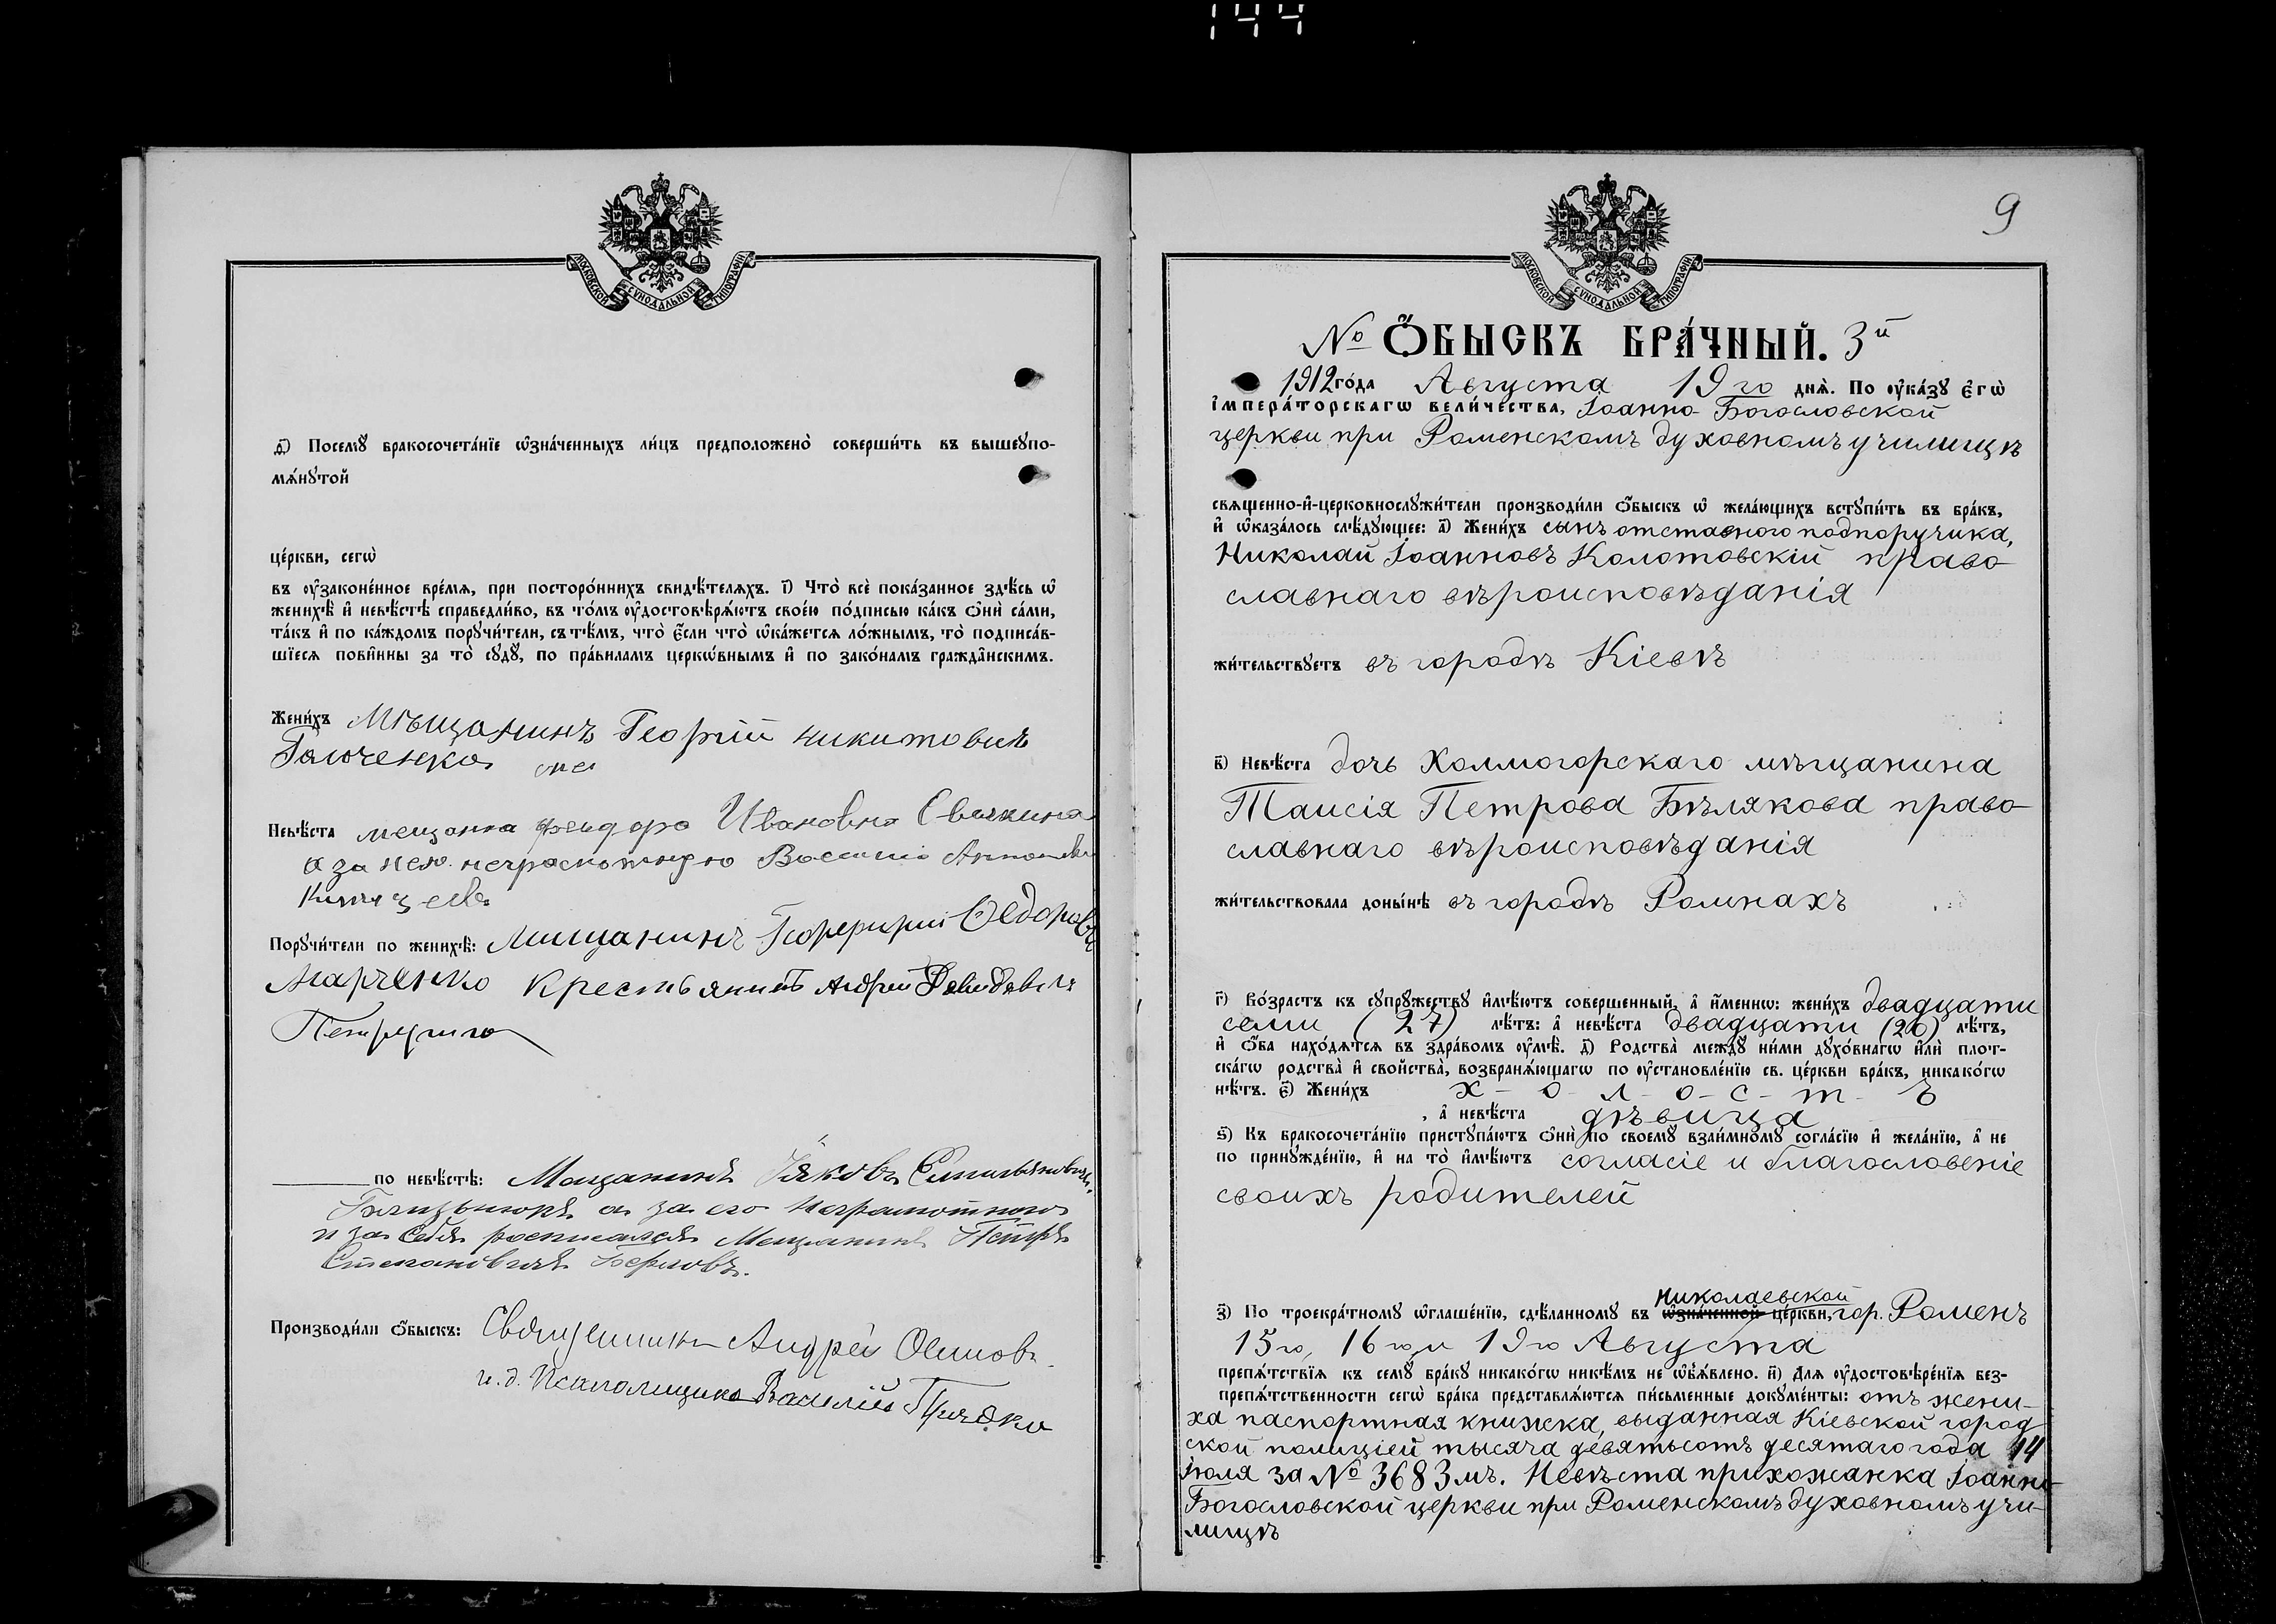 144
МОСКОВСКОЙ СѴНОДАЛЬНОЙ ТИПОГРАФІИ
д҃) Посемꙋ̀ бракосочета́нїе ѡ҆зна́ченныхъ ли́цъ предположено̀ соверши́ть въ вышеꙋпо-
мѧ́нꙋтой
це́ркви, сегѡ̀
въ ᲂу҆законе́нное вре́мѧ, при посторо́ннихъ свидѣ́телѧхъ. і҃) Что̀ всѐ пока́занное здѣ́сь ѡ҆
женихѣ̀ и҆ невѣ́стѣ справедли́во, въ то́мъ ᲂу҆достовѣрѧ́ютъ свое́ю по́дписью ка́къ ѻ҆нѝ са́ми,
та́къ и҆ по ка́ждомъ порꙋчи́тели, съ тѣ́мъ, что̀ є҆́сли что̀ ѡ҆ка́жетсѧ ло́жнымъ, то̀ подписа́в-
шїесѧ пови́нны за то̀ сꙋдꙋ̀, по пра́виламъ церко́внымъ и҆ по зако́намъ гражда́нскимъ.
Жени́хъ Мѣщанинъ Георгій Никитовичъ
Невѣ́ста мещанка Ивановна
а за нея неграмотную
Порꙋчи́тели по женихѣ̀: Мищанинъ Порфирий Федоровъ
Марченко Крестьянинъ Андрей Давидовичъ
по невѣ́стѣ: Мещанинъ Яковъ Емильяновичъ
а за его неграмотного
и за себя росписался Мещанинъ Петръ
Степановичъ
Производи́ли ѻ҆́быскъ: Священникъ Андрей Осиповъ
и. д. Псаломщика Василій
МОСКОВСКОЙ СѴНОДАЛЬНОЙ ТИПОГРАФІИ
9
№ Ѻ҆́БЫСКЪ БРА́ЧНЫЙ. 3й
1912 го́да Августа 19го днѧ̀. По ᲂу҆ка́зꙋ є҆гѡ̀
і҆мпера́торскагѡ вели́чества, Іоанно-Богословской
церкви при Роменскомъ духовномъ училищѣ
свѧщенно-и҆-церковнослꙋжи́тели производи́ли ѻ҆́быскъ ѡ҆ жела́ющихъ вступи́ть въ бра́къ,
и҆ ѡ҆каза́лось слѣ́дꙋющее: а҃) Жени́хъ сынъ отставного подпоручика,
Николай Іоанновъ Колотовскій право-
славнаго вѣроисповѣданія
жи́тельствꙋетъ въ городѣ Кіевѣ
в҃) Невѣ́ста дочь Холмогорскаго мѣщанина
Таисія Петрова Бѣлякова право-
славнаго вѣроисповѣданія
жи́тельствовала донынѣ въ городѣ Ромнахъ
г҃) Во́зрастъ къ сꙋпрꙋжествꙋ и҆мѣ́ютъ соверше́нный, а҆ и҆́менно: жени́хъ двадцати
семи (27) лѣ́тъ: а҆ невѣ́ста двадцати (20) лѣ́тъ,
и҆ ѻ҆́ба нахо́дѧтсѧ въ здра́вомъ ᲂу҆мѣ̀. д҃) Родства̀ междꙋ̀ ни́ми дꙋхо́внагѡ и҆лѝ плот-
ска́гѡ родства̀ и҆ сво́йства, возбранѧ́ющагѡ по ᲂу҆становле́нїю св. це́ркви бра́къ, никако́гѡ
нѣ́тъ. є҃) Жени́хъ х-о-л-о-с-т-ъ
, а҆ невѣ́ста дѣвица
ѕ҃) Къ бракосочета́нїю пристꙋпа́ютъ ѻ҆нѝ по своемꙋ̀ взаи́мномꙋ согла́сїю и҆ жела́нїю, а҆ не
по принꙋжде́нїю, и҆ на то̀ и҆мѣ́ютъ согласіе и благословеніе
своихъ родителей
николаевской
з҃) По троекра́тномꙋ ѡ҆глаше́нїю, сдѣ́ланномꙋ въ ѡ҆зна́ченной це́ркви, гор. Роменъ
15го, 16го, и 19го Августа
препѧ́тствїѧ къ семꙋ̀ бра́кꙋ никако́гѡ никѣ́мъ не ѡ҆б̾ѧ́влено. и҃) Длѧ ᲂу҆достовѣре́нїѧ без-
препѧ́тственности сегѡ̀ бра́ка представлѧ́ютсѧ пи́сьменные докꙋме́нты: отъ жени-
ха паспортная книжка, выданная Кіевской город-
ской полиціей тысяча девятьсотъ десятаго года 14
Іюля за № 3683мъ. Невѣста прихожанка Іоанно-
Богословской церкви при Роменскомъ духовномъ учи-
лищѣ